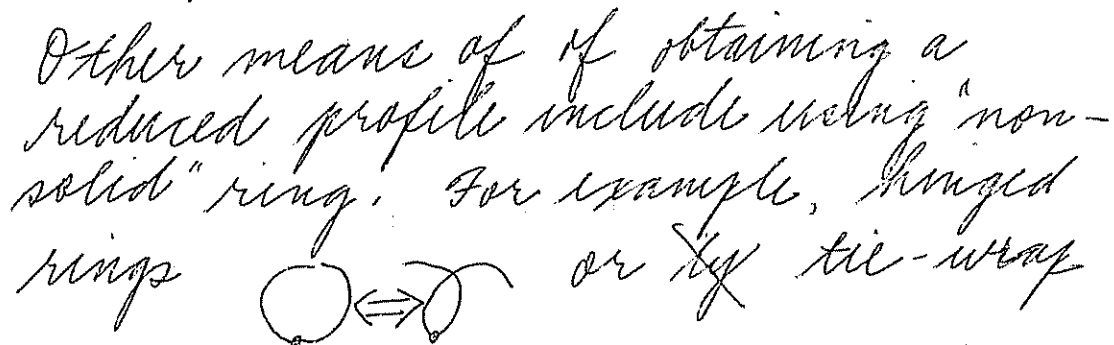 Other means of of obtaining a
reduced profile include using "non-
solid" ring. For example, hinged
rings or ty tie-wrap